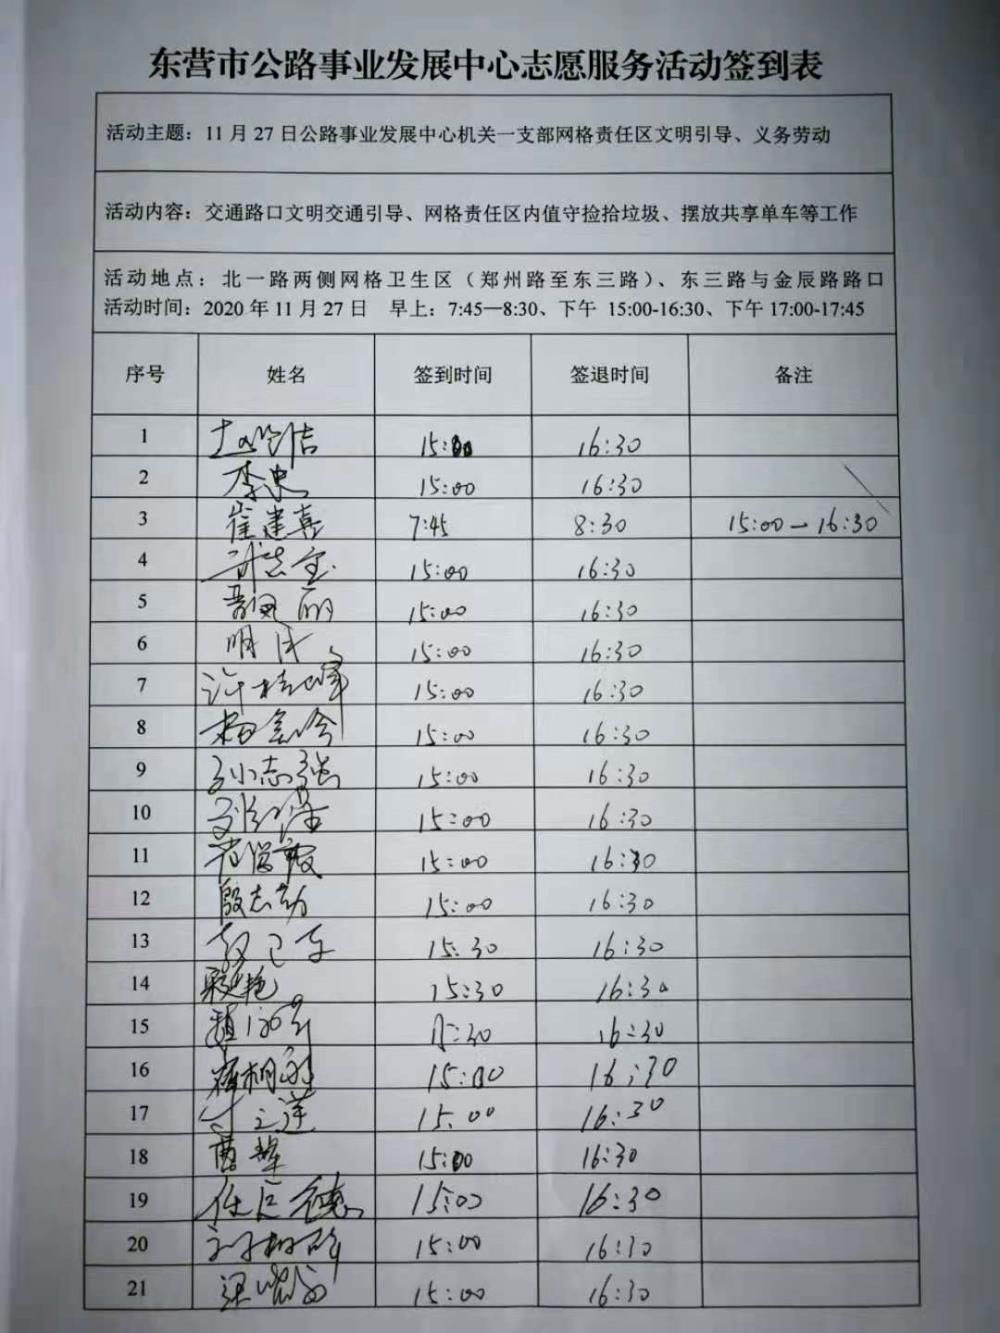 东营市公路事业发展中心志愿服务活动签到表
活动主题：11月27日公路事业发展中心机关一支部网格责任区文明引导、义务劳动
活动内容：交通路口文明交通引导、网格责任区内值守捡拾垃圾、摆放共享单车等工作
活动地点：北一路两侧网格卫生区（郑州路至东三路）、东三路与金辰路路口
活动时间：2020年11月27日 早上：7:45—8:30、下午 15:00-16:30、下午17:00-17:45
序号 姓名 签到时间 签退时间 备注
1 15:00 16:30
2 李忠 15:00 16:30
3 崔建喜 7:45 8:30 15:00—16:30
4 15:00 16:30
5 15:00 16:30
6 15:00 16:30
7 许桂峰 15:00 16:30
8 15:00 16:30
9 孙志强 15:00 16:30
10 15:00 16:30
11 15:00 16:30
12 殷志勃 15:00 16:30
13 15:30 16:30
14 15:30 16:30
15 16:30
16 15:00 16:30
17 15:00 16:30
18 曹辉 15:00 16:30
19 任巨德 15:00 16:30
20 15:00 16:30
21 15:00 16:30